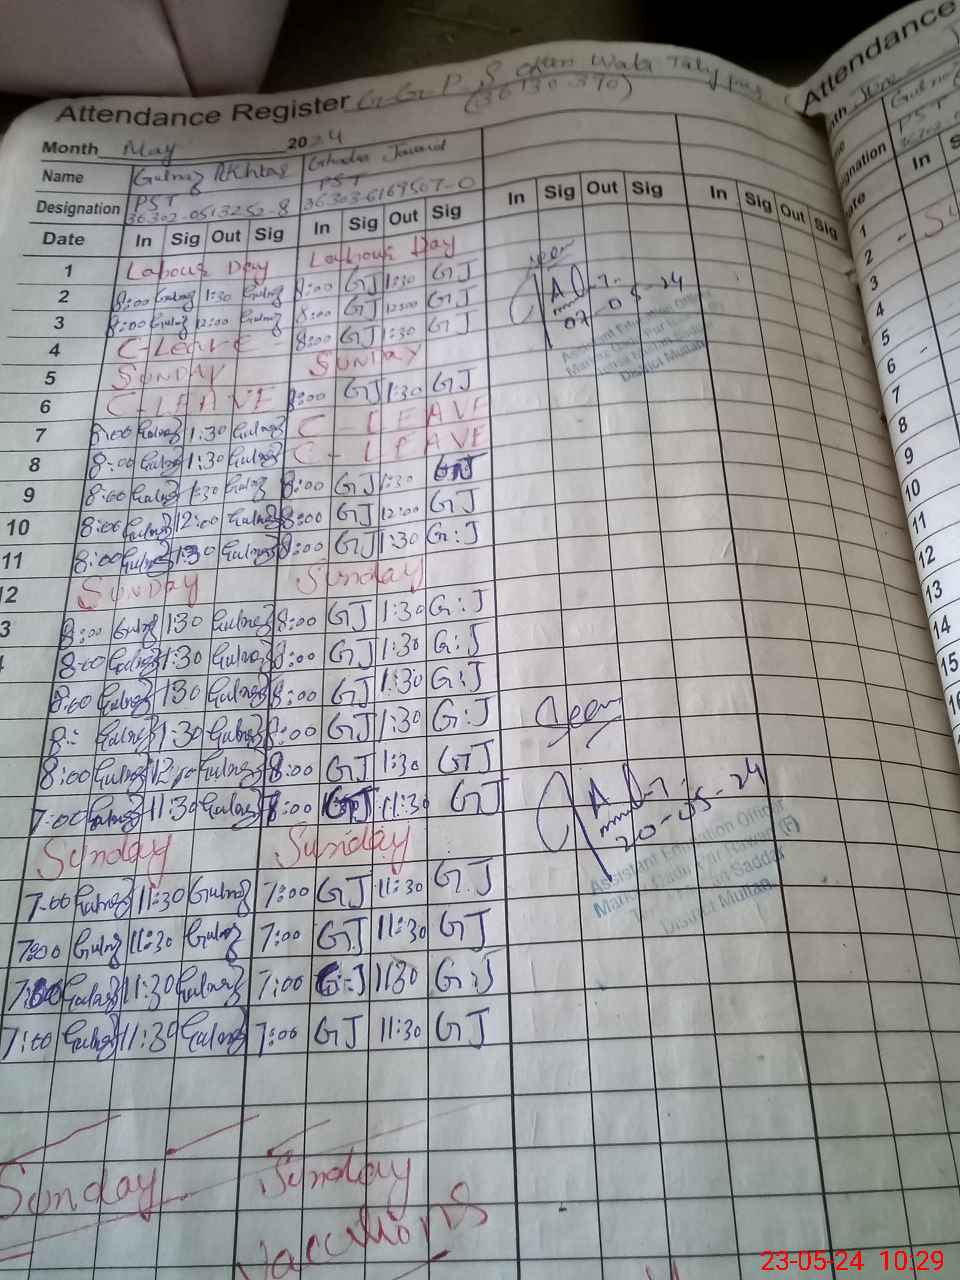 Attendance Register G.G.P.S
(36130370)
Month May 2024
Name Gulnaz Akhtar Ghazala Jawaid
Designation PST PST
36302-0513252-8 36303-6169507-0
Date In Sig Out Sig In Sig Out Sig In Sig Out Sig In Sig Out Sig
1 Labour Day Labour Day
2 8:00 Gulnaz 1:30 Gulnaz 8:00 GJ 1:30 GJ
3 8:00 Gulnaz 12:00 Gulnaz 8:00 GJ 12:00 GJ
4 C-Leave 8:00 GJ 1:30 GJ
5 SUNDAY SUNDAY
6 C-LEAVE 8:00 GJ 1:30 GJ
7 8:00 Gulnaz 1:30 Gulnaz C-LEAVE
8 8:00 Gulnaz 1:30 Gulnaz C-LEAVE
9 8:00 Gulnaz 1:30 Gulnaz 8:00 GJ 1:30 GJ
10 8:00 Gulnaz 12:00 Gulnaz 8:00 GJ 12:00 GJ
11 8:00 Gulnaz 1:30 Gulnaz 8:00 GJ 1:30 G:J
2 SUNDAY Sunday
3 8:00 Gulnaz 1:30 Gulnaz 8:00 GJ 1:30 G:J
8:00 Gulnaz 1:30 Gulnaz 8:00 GJ 1:30 G:J
8:00 Gulnaz 130 Gulnaz 8:00 GJ 1:30 G:J
8:- Gulnaz 1:30 Gulnaz 8:00 GJ 1:30 G:J
8:00 Gulnaz 12:00 Gulnaz 8:00 GJ 1:30 GJ
7:00 Gulnaz 11:30 Gulnaz 8:00 GJ 11:30 GJ
Sunday Sunday
7:00 Gulnaz 11:30 Gulnaz 7:00 GJ 11:30 G.J
7:00 Gulnaz 11:30 Gulnaz 7:00 GJ 11:30 GJ
7:00 Gulnaz 11:30 Gulnaz 7:00 G:J 1130 G:J
7:00 Gulnaz 11:30 Gulnaz 7:00 GJ 11:30 GJ
Sunday Sunday
Vacations
Seen
07-05-24
Assistant Education Officer
District Multan
Seen
20-05-24
Assistant Education Officer
Saddar
District Multan
Attendance
In
1
2
3
4
5
6
7
8
9
10
11
12
13
14
15
23-05-24 10:29